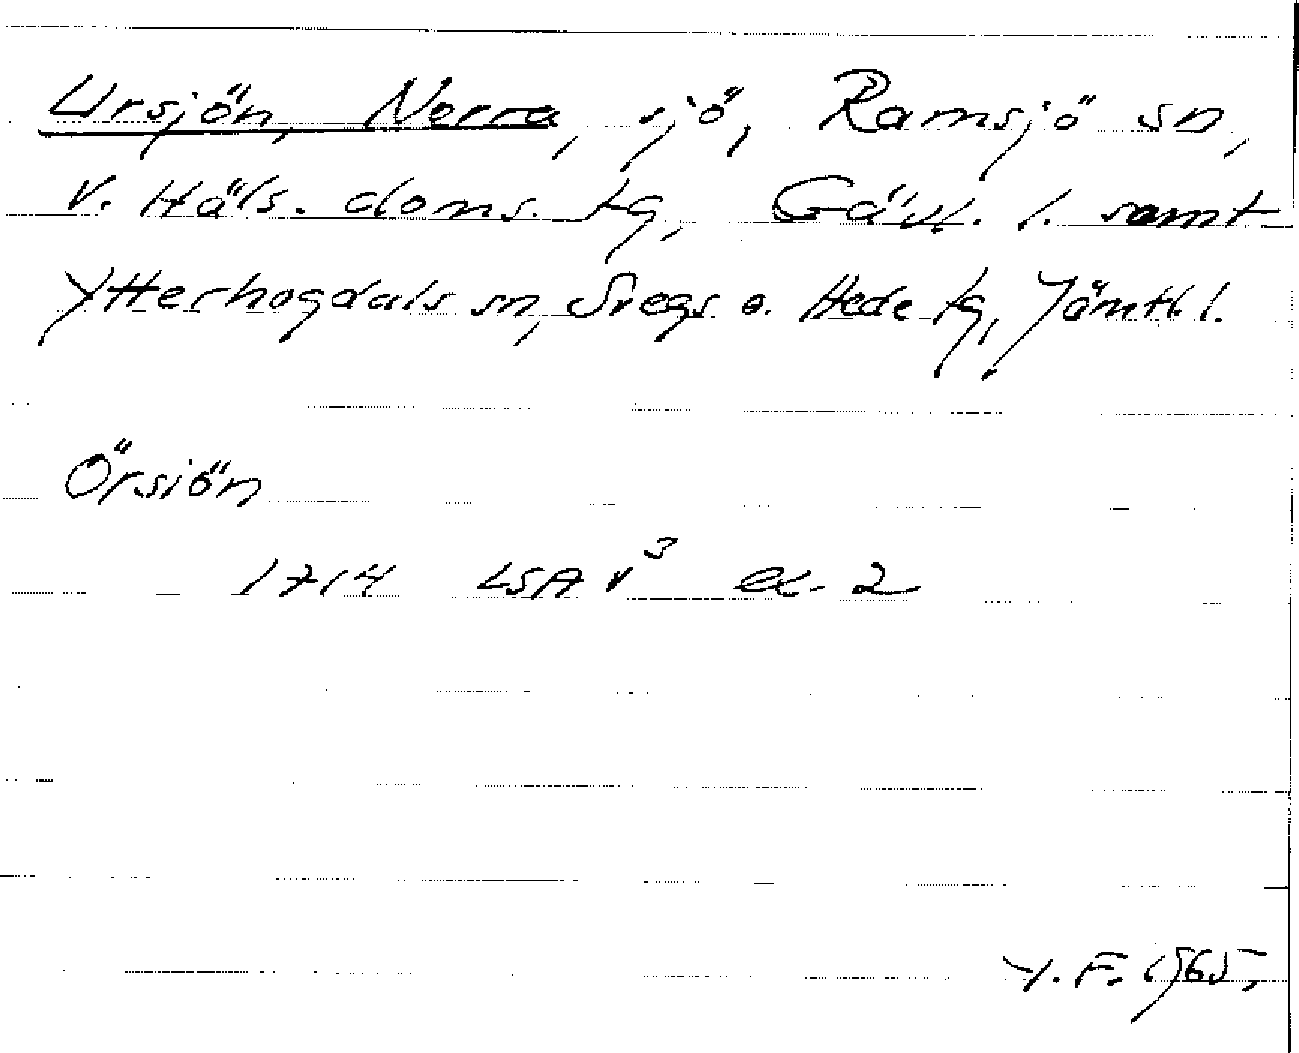 Ursjön, Norra, sjö, Ramsjö sn,
V. Häls. doms. tg, Gävl. l. samt
Ytterhogdals sn, Svegs o. Hede tg, Jämtl. l.
Örsiön
1714 LSA V³ ex. 2
Y. F. 1965.